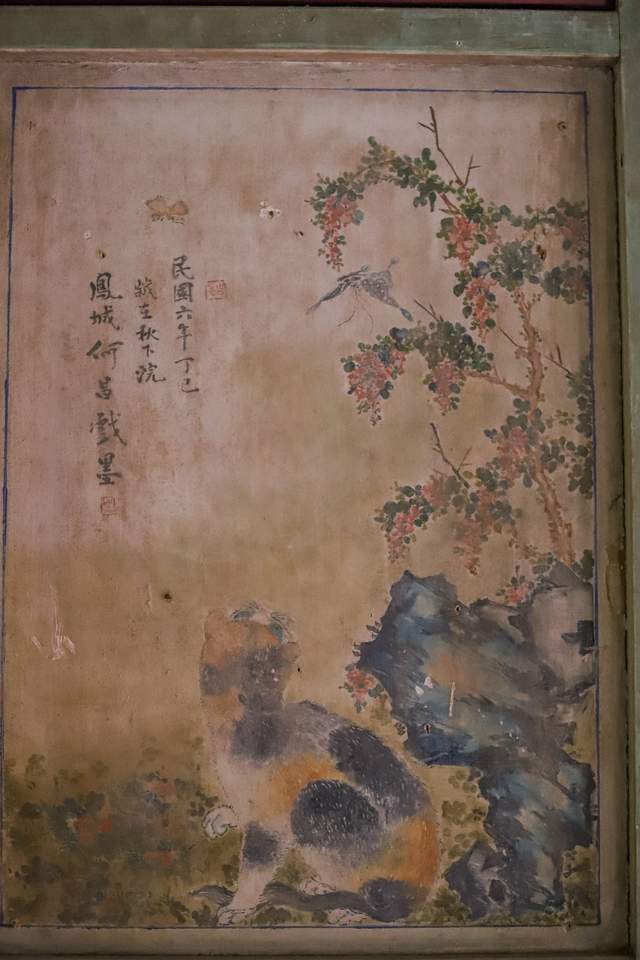 民國六年丁巳
歲在秋下浣
鳳城何昌戲墨